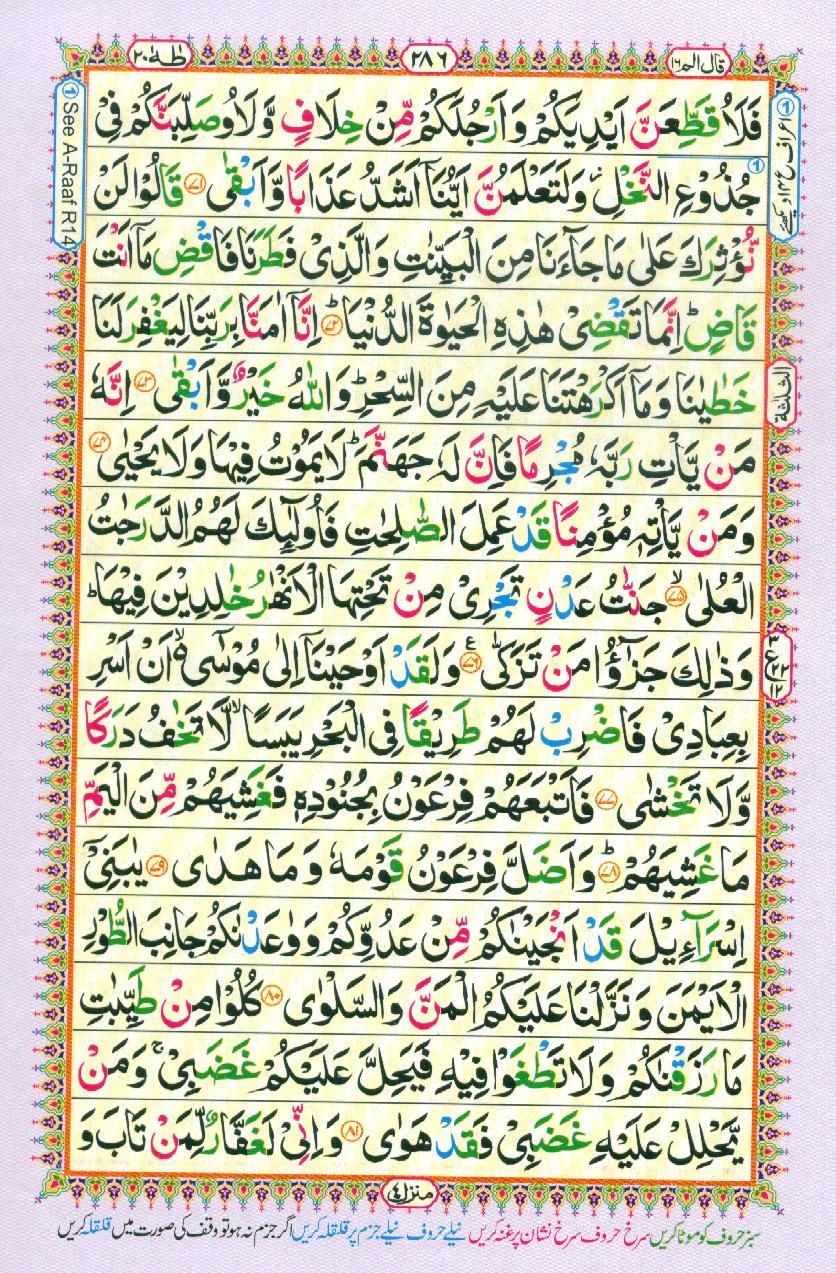 قال الم ١٦
٢٨٦
طٰهٰ ٢٠
فَلَاُقَطِّعَنَّ اَيْدِيَكُمْ وَاَرْجُلَكُمْ مِّنْ خِلَافٍ وَّلَاُوصَلِّبَنَّكُمْ فِىْ
جُذُوْعِ النَّخْلِ ۡ وَلَتَعْلَمُنَّ اَيُّنَاۤ اَشَدُّ عَذَابًا وَّاَبْقٰى ﴿۷۱﴾ قَالُوْا لَنْ
نُّؤْثِرَكَ عَلٰى مَا جَآءَنَا مِنَ الْبَيِّنٰتِ وَالَّذِىْ فَطَرَنَا فَاقْضِ مَاۤ اَنْتَ
قَاضٍ ؕ اِنَّمَا تَقْضِىْ هٰذِهِ الْحَيٰوةَ الدُّنْيَا ؕ ﴿۷۲﴾ اِنَّاۤ اٰمَنَّا بِرَبِّنَا لِيَغْفِرَ لَنَا
خَطٰيٰنَا وَمَاۤ اَكْرَهْتَنَا عَلَيْهِ مِنَ السِّحْرِ ؕ وَاللّٰهُ خَيْرٌ وَّاَبْقٰى ﴿۷۳﴾ اِنَّهٗ
مَنْ يَّاْتِ رَبَّهٗ مُجْرِمًا فَاِنَّ لَهٗ جَهَنَّمَ ؕ لَا يَمُوْتُ فِيْهَا وَلَا يَحْيٰى ﴿۷۴﴾
وَمَنْ يَّاْتِهٖ مُؤْمِنًا قَدْ عَمِلَ الصّٰلِحٰتِ فَاُولٰٓئِكَ لَهُمُ الدَّرَجٰتُ
الْعُلٰى ۙ ﴿۷۵﴾ جَنّٰتُ عَدْنٍ تَجْرِىْ مِنْ تَحْتِهَا الْاَنْهٰرُ خٰلِدِيْنَ فِيْهَا ؕ
وَذٰلِكَ جَزٰٓؤُا مَنْ تَزَكّٰى ﴿۷۶﴾ ع وَلَقَدْ اَوْحَيْنَاۤ اِلٰى مُوْسٰٓى ۙ اَنْ اَسْرِ
بِعِبَادِىْ فَاضْرِبْ لَهُمْ طَرِيْقًا فِى الْبَحْرِ يَبَسًا ۙ لَّا تَخٰفُ دَرَكًا
وَّلَا تَخْشٰى ﴿۷۷﴾ فَاَتْبَعَهُمْ فِرْعَوْنُ بِجُنُوْدِهٖ فَغَشِيَهُمْ مِّنَ الْيَمِّ
مَا غَشِيَهُمْ ؕ ﴿۷۸﴾ وَاَضَلَّ فِرْعَوْنُ قَوْمَهٗ وَمَا هَدٰى ﴿۷۹﴾ يٰبَنِىْۤ
اِسْرَآءِيْلَ قَدْ اَنْجَيْنٰكُمْ مِّنْ عَدُوِّكُمْ وَوٰعَدْنٰكُمْ جَانِبَ الطُّوْرِ
الْاَيْمَنَ وَنَزَّلْنَا عَلَيْكُمُ الْمَنَّ وَالسَّلْوٰى ﴿۸۰﴾ كُلُوْا مِنْ طَيِّبٰتِ
مَا رَزَقْنٰكُمْ وَلَا تَطْغَوْا فِيْهِ فَيَحِلَّ عَلَيْكُمْ غَضَبِىْ ۚ وَمَنْ
يَّحْلِلْ عَلَيْهِ غَضَبِىْ فَقَدْ هَوٰى ﴿۸۱﴾ وَاِنِّىْ لَغَفَّارٌ لِّمَنْ تَابَ وَ
① See A-Raaf R14
①
الثلثة
منزل ٤
سبز حروف کو موٹا کریں سرخ حروف سرخ نشان پر غنہ کریں نیلے حروف نیلے جزم پر قلقلہ کریں اگر جزم نہ ہو تو وقف کی صورت میں قلقلہ کریں